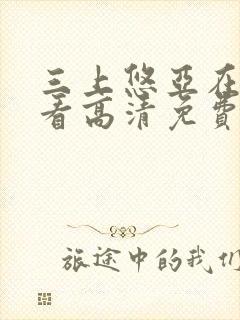 三上悠亞在
看高清免費
旅途中的我们